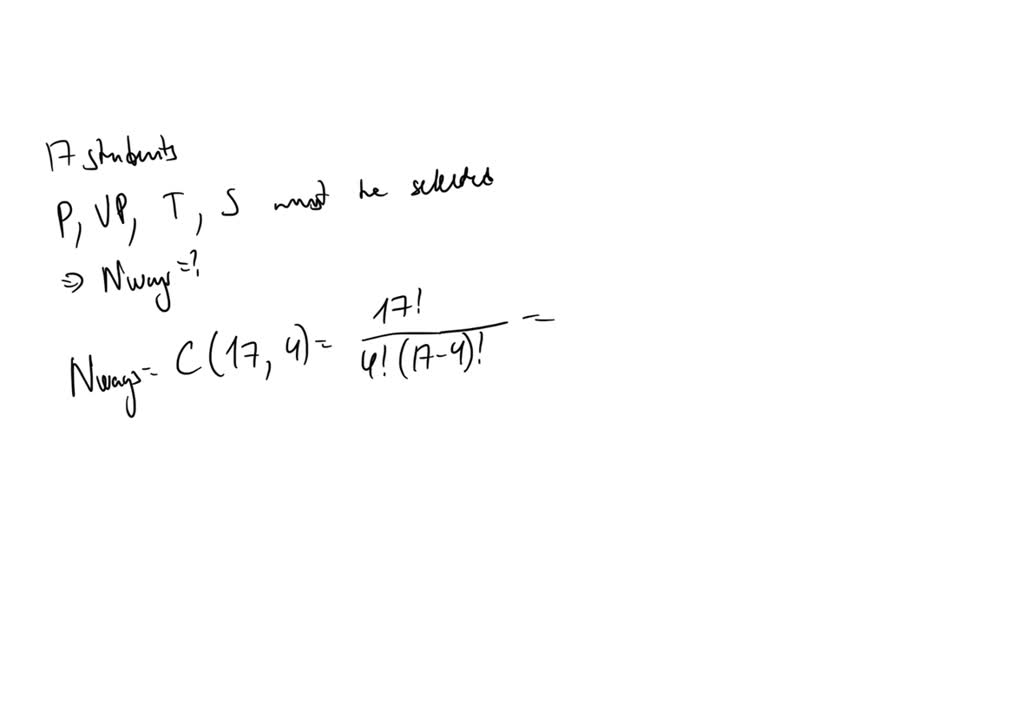 17 students
P, VP, T, S must be selected
⇒ Nways=?
Nways= C(17, 4)= 17! / 4!(17-4)! =